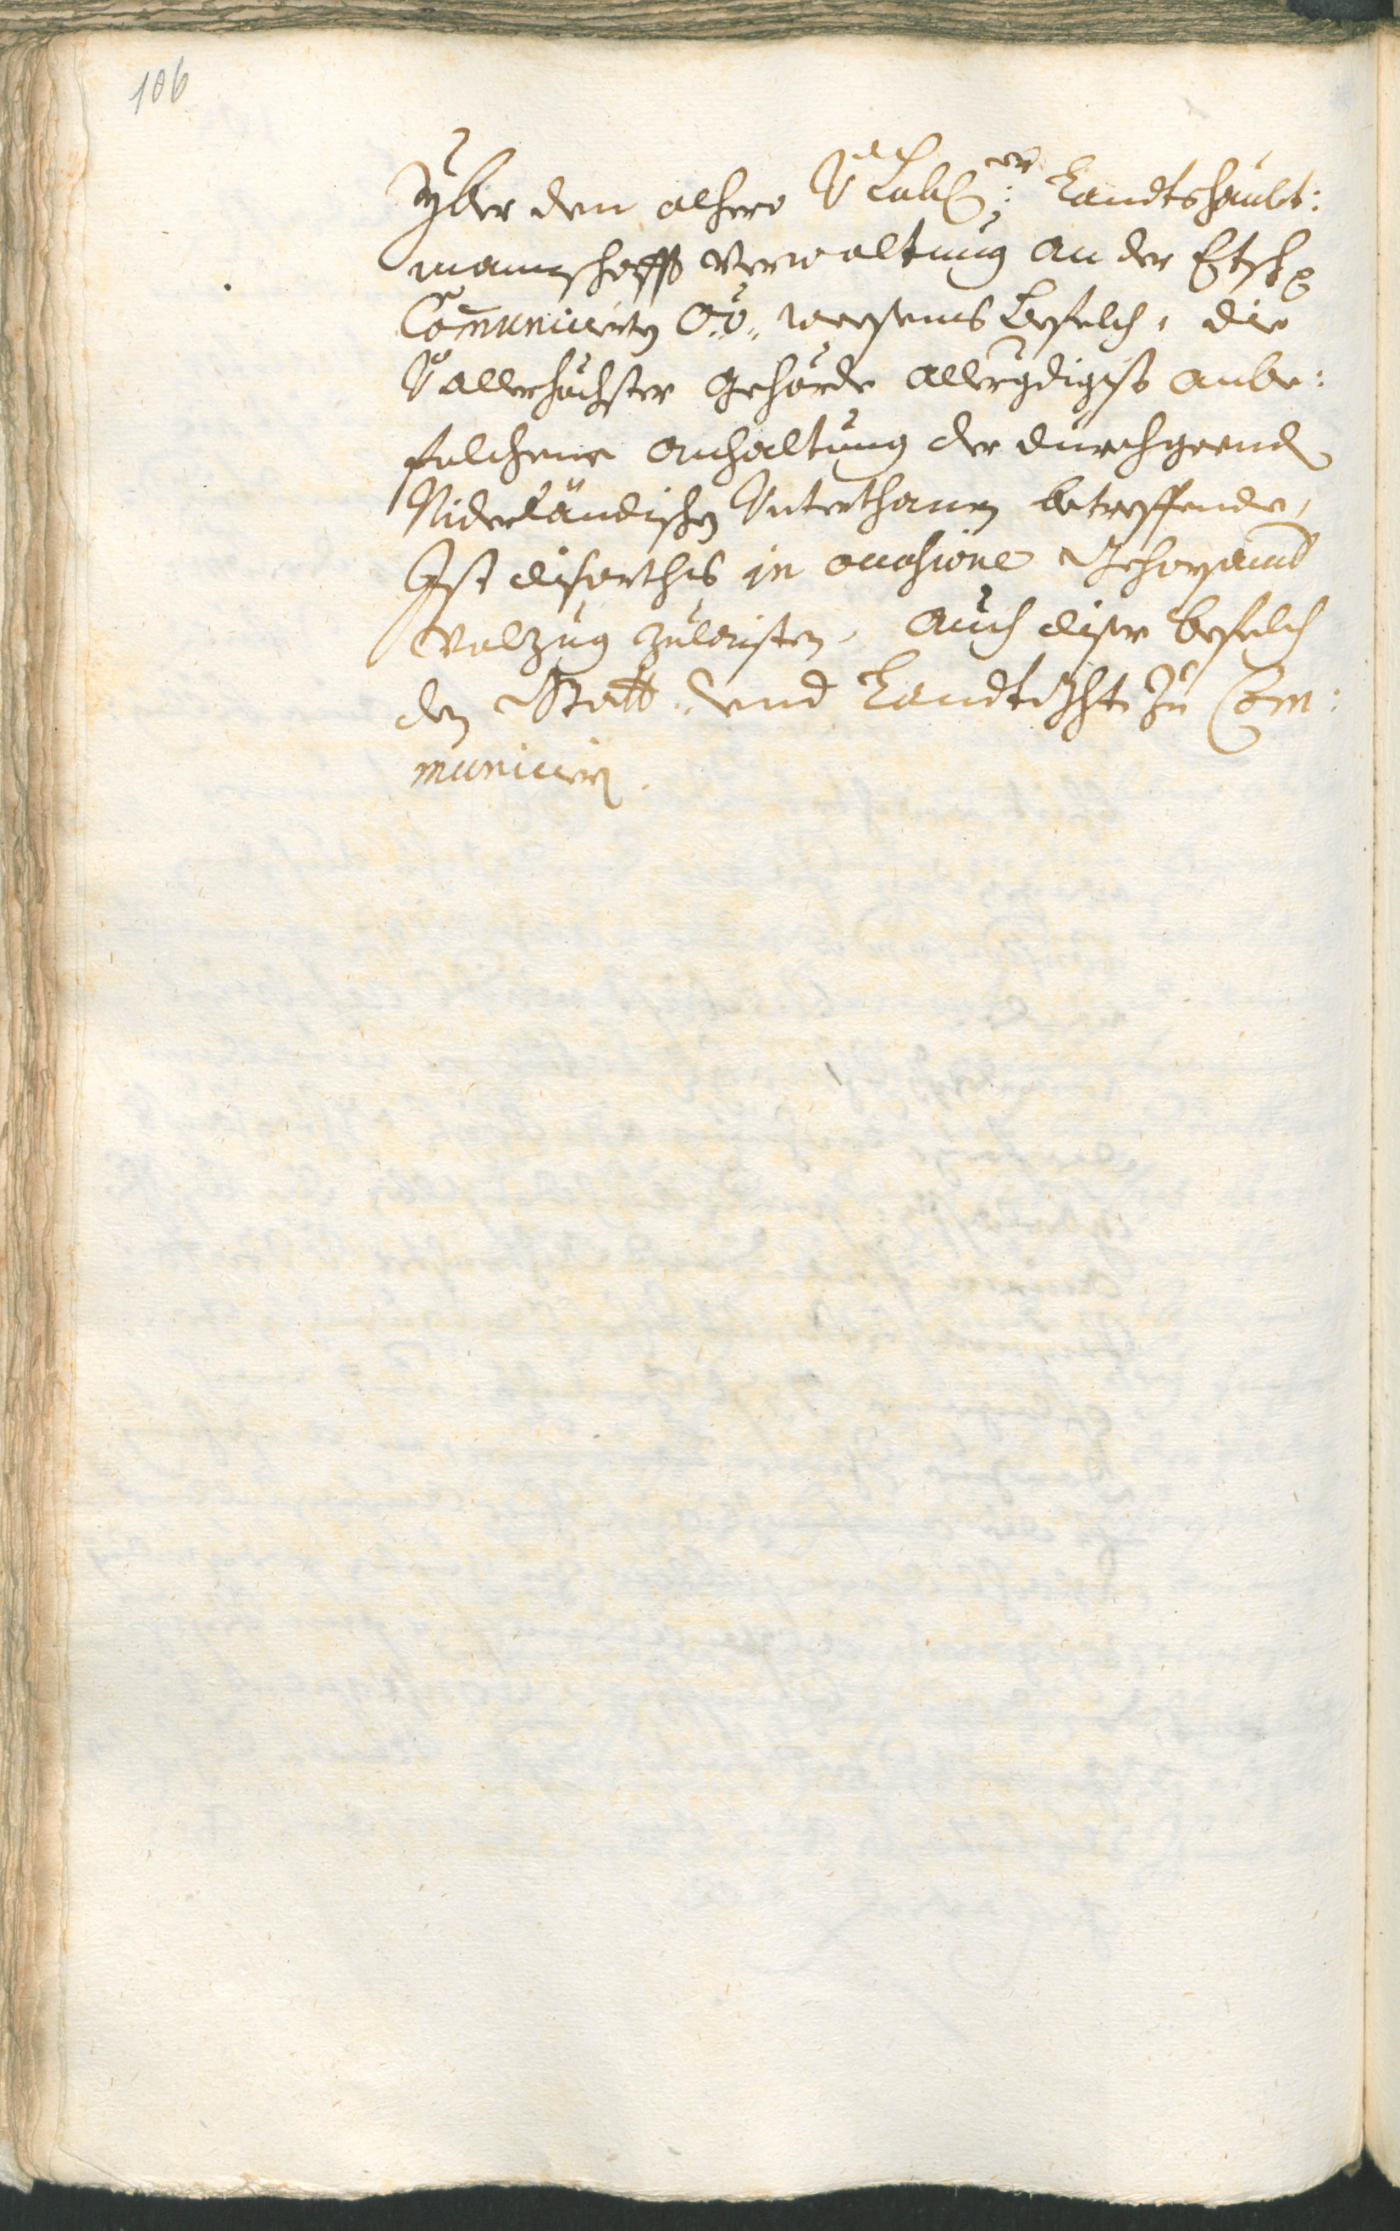 106
Yber den alhero Vo Lobl: er Landtshaubt:
manschafft Verwaltung an der Etsch
Com̃unicierten O: Ö: weesens Befelch, die
Vo allerhöchster gehörde allergdigist anbe:
folchene anhaltung der durchgeend
Niderländischen Unterthanen betreffende,
Ist diserthis in occasione Gehorsamb
Volzug zulaisten, Auch diser befelch
den Statt: und Landt zu Com:
municiern.